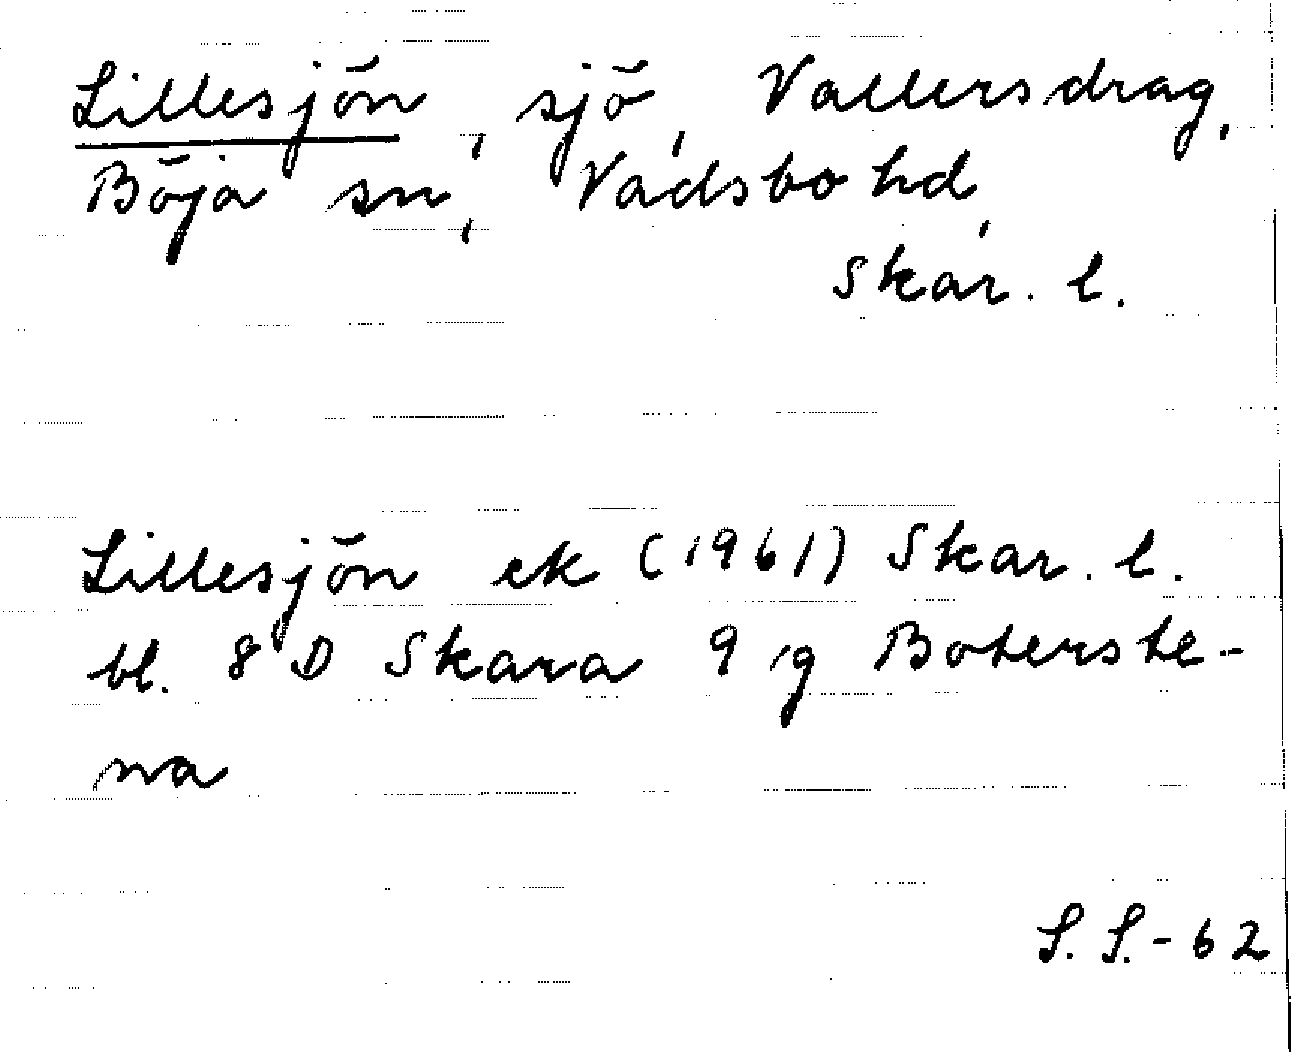 Lillesjön, sjö, Vallersdrag,
Böja sn, Vadsbo hd,
Skar. l.
Lillesjön ek (1961) Skar. l.
bl. 8 D Skara 9 g Boterste-
na
S. S. - 62